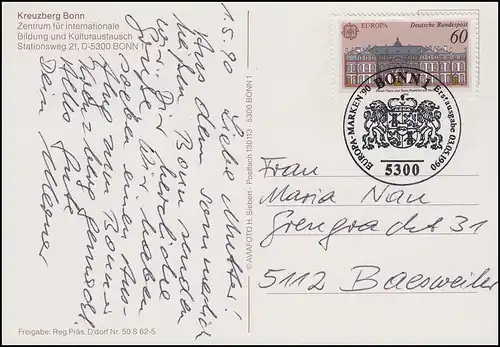 Kreuzberg Bonn
Zentrum für internationale
Bildung und Kulturaustausch
Stationsweg 21, D-5300 BONN 1
1.5.90
Liebe Mutter!
Aus dem sommerlich
heißen Bonn senden
wir Dir herzliche
Grüße. Wir haben
soeben einen Aus-
flug zum Bonner
Kreuzberg gemacht.
Alles Gute
Dein
© AVIAFOTO H. Siebert · Postfach 130113 · 5300 BONN 1
Freigabe: Reg.Präs. D'dorf Nr. 50 S 62-5
EUROPA Deutsche Bundespost
60
EUROPA-MARKEN '90 BONN 1 Erstausgabe 03.05.1990
5300
Frau
Maria Nau
Grengracht 31
5112 Baesweiler